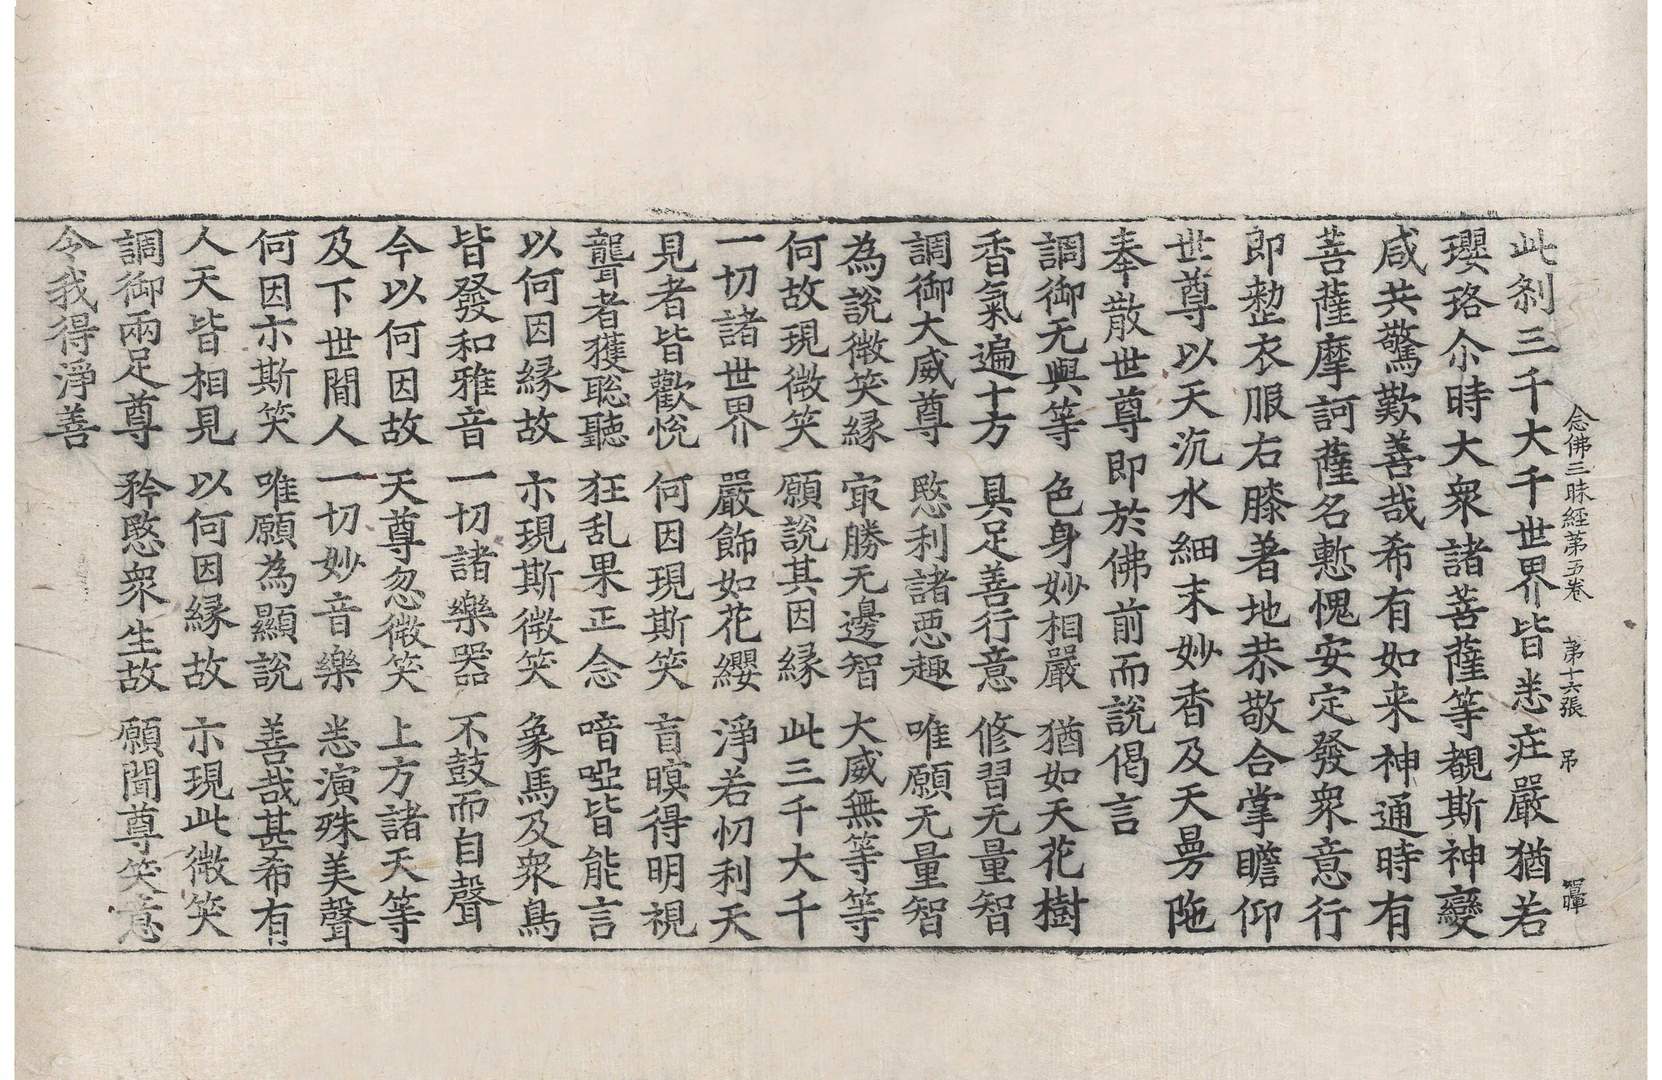 念佛三昧經第五卷 第十六張 吊
此剎三千大千世界皆悉庄嚴猶若
瓔珞尒時大衆諸菩薩等覩斯神變
咸共驚歎善哉希有如来神通時有
菩薩摩訶薩名慙愧安定發衆意行
即整衣服右膝著地恭敬合掌瞻仰
世尊以天沉水細末妙香及天曼陁
奉散世尊即於佛前而說偈言
調御无與等 色身妙相嚴 猶如天花樹
香氣遍十方 具足善行意 修習无量智
調御大威尊 愍利諸惡趣 唯願无量智
為說微笑緣 㝡勝无邊智 大威無等等
何故現微笑 願說其因緣 此三千大千
一切諸世界 嚴飾如花纓 淨若忉利天
見者皆歡悅 何因現斯笑 盲瞑得明視
聾者獲聡聽 狂乱果正念 喑啞皆能言
以何因緣故 示現斯微笑 象馬及衆鳥
皆發和雅音 一切諸樂器 不鼓而自聲
今以何因故 天尊忽微笑 上方諸天等
及下世間人 一切妙音樂 悉演殊美聲
何因示斯笑 唯願為顯說 善哉甚希有
人天皆相見 以何因緣故 示現此微笑
調御兩足尊 矜愍衆生故 願聞尊笑意
令我得淨善